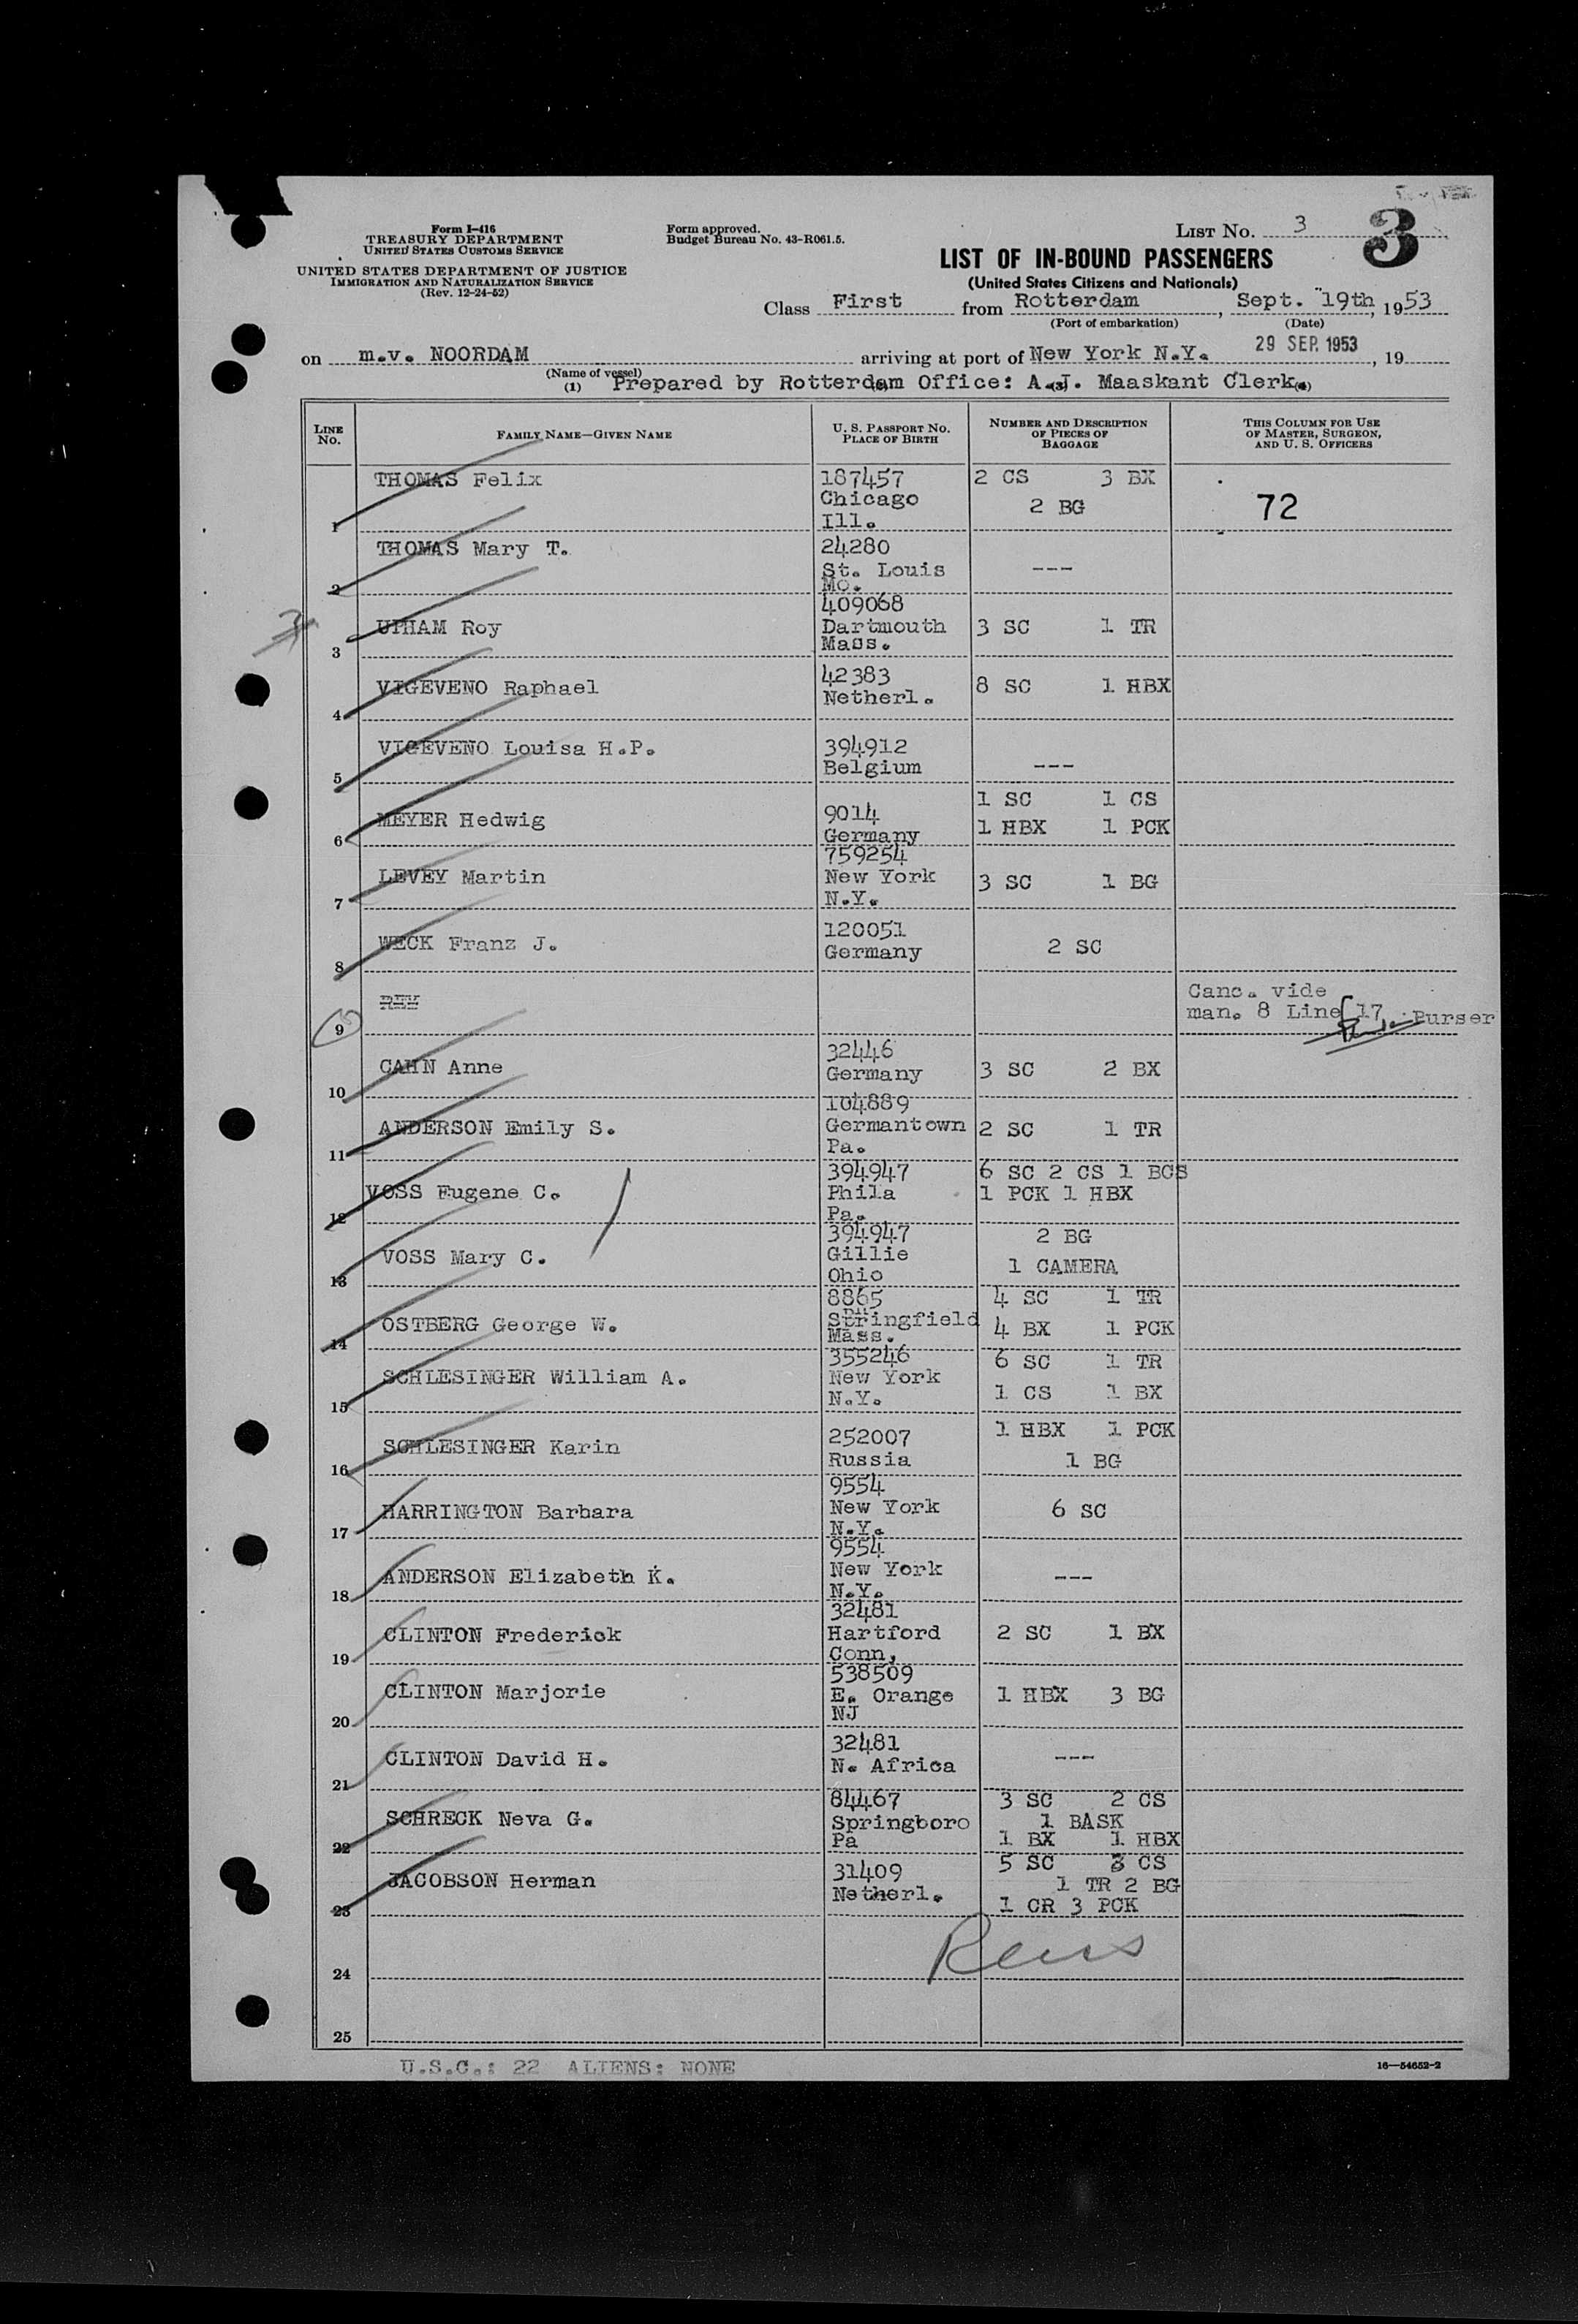 Form I-416
TREASURY DEPARTMENT
UNITED STATES CUSTOMS SERVICE
UNITED STATES DEPARTMENT OF JUSTICE
IMMIGRATION AND NATURALIZATION SERVICE
(Rev. 12-24-52)
Form approved.
Budget Bureau No. 43-R061.5.
LIST No. 3
3
LIST OF IN-BOUND PASSENGERS
(United States Citizens and Nationals)
Class First from Rotterdam, Sept. 19th, 1953
(Port of embarkation) (Date)
on m.v. NOORDAM arriving at port of New York N.Y. 29 SEP. 1953, 19
(Name of vessel)
(1) Prepared by Rotterdam Office: A.J. Maaskant Clerk
LINE No.
FAMILY NAME—GIVEN NAME
U. S. PASSPORT NO.
PLACE OF BIRTH
NUMBER AND DESCRIPTION
OF PIECES OF
BAGGAGE
THIS COLUMN FOR USE
OF MASTER, SURGEON,
AND U. S. OFFICERS
1 THOMAS Felix 187457 2 CS 3 BX
Chicago 2 BG 72
Ill.
2 THOMAS Mary T. 24280
St. Louis ---
Mo.
3 UPHAM Roy 409068
Dartmouth 3 SC 1 TR
Mass.
4 VIGEVENO Raphael 42383 8 SC 1 HBX
Netherl.
5 VIGEVENO Louisa H.P. 394912
Belgium ---
6 MEYER Hedwig 9014 1 SC 1 CS
Germany 1 HBX 1 PCK
7 LEVEY Martin 759254
New York 3 SC 1 BG
N.Y.
8 WECK Franz J. 120051
Germany 2 SC
9 REY Canc. vide
man. 8 Line 17 Purser
10 CAHN Anne 32446
Germany 3 SC 2 BX
11 ANDERSON Emily S. 104889
Germantown 2 SC 1 TR
Pa.
12 VOSS Eugene C. 394947 6 SC 2 CS 1 BCS
Phila 1 PCK 1 HBX
Pa.
13 VOSS Mary C. 394947 2 BG
Gillie 1 CAMERA
Ohio
14 OSTBERG George W. 8865 4 SC 1 TR
Springfield 4 BX 1 PCK
Mass.
15 SCHLESINGER William A. 355246 6 SC 1 TR
New York 1 CS 1 BX
N.Y.
16 SCHLESINGER Karin 252007 1 HBX 1 PCK
Russia 1 BG
17 HARRINGTON Barbara 9554
New York 6 SC
N.Y.
18 ANDERSON Elizabeth K. 9554
New York ---
N.Y.
19 CLINTON Frederick 32481
Hartford 2 SC 1 BX
Conn,
20 CLINTON Marjorie 538509
E. Orange 1 HBX 3 BG
NJ
21 CLINTON David H. 32481
N. Africa ---
22 SCHRECK Neva G. 84467 3 SC 2 CS
Springboro 1 BASK
Pa 1 BX 1 HBX
23 JACOBSON Herman 31409 5 SC 3 CS
Netherl. 1 TR 2 BG
1 CR 3 PCK
24
25
U.S.C.: 22 ALIENS: NONE
16—54652-2